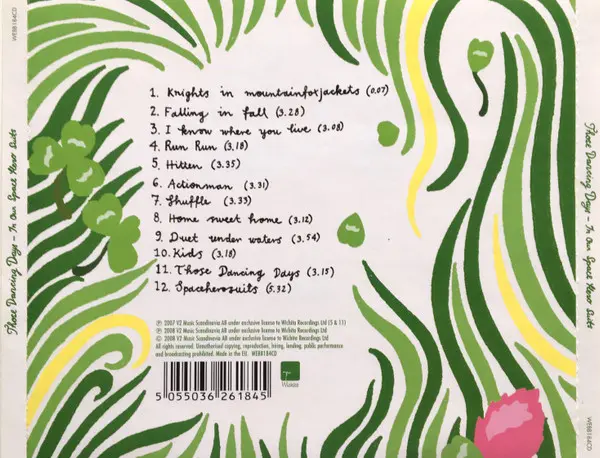 WEBB184CD
Those Dancing Days – In Our Space Hero Suits
1. Knights in mountainfoxjackets (0.07)
2. Falling in fall (3.28)
3. I know where you live (3.08)
4. Run Run (3.18)
5. Hitten (3.35)
6. Actionman (3.31)
7. Shuffle (3.33)
8. Home sweet home (3.12)
9. Duet under waters (3.54)
10. Kids (3.18)
11. Those Dancing Days (3.15)
12. Spaceherosuits (5.32)
℗ 2007 V2 Music Scandinavia AB under exclusive license to Wichita Recordings Ltd (5 & 11)
℗ 2008 V2 Music Scandinavia AB under exclusive license to Wichita Recordings Ltd
© 2008 V2 Music Scandinavia AB under exclusive license to Wichita Recordings Ltd
All rights reserved. Unauthorised copying, reproduction, hiring, lending, public performance
and broadcasting prohibited. Made in the EU. WEBB184CD
5 055036 261845
Wichita
Those Dancing Days – In Our Space Hero Suits
WEBB184CD